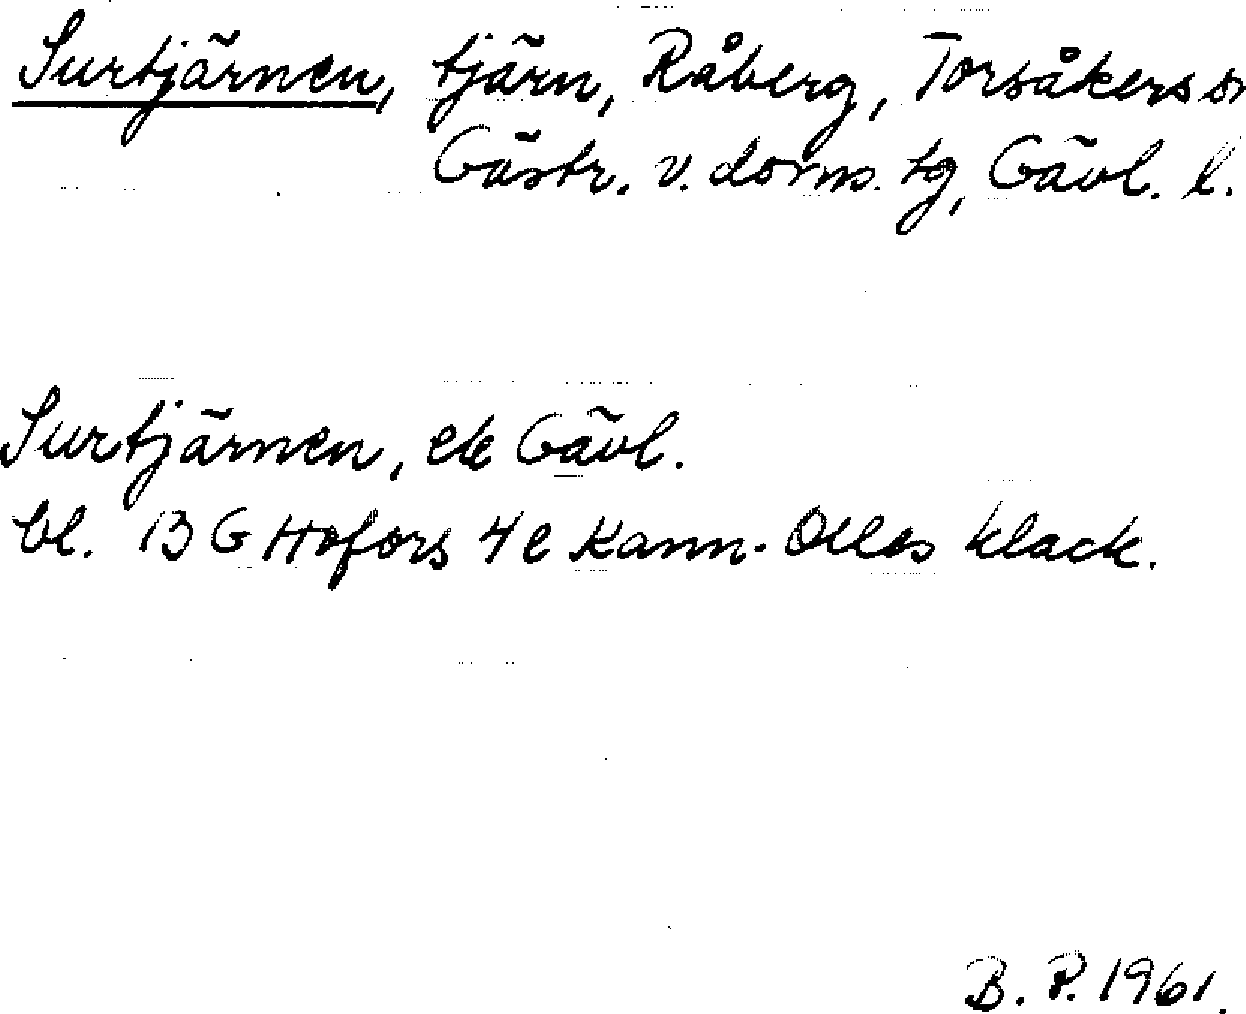 Surtjärnen, tjärn, Råberg, Torsåkers sn
Gästr. v. doms. tg, Gävl. l.
Surtjärnen, ek Gävl.
bl. 13 G Hofors 4 e Kann-Olles klack.
B. P. 1961.